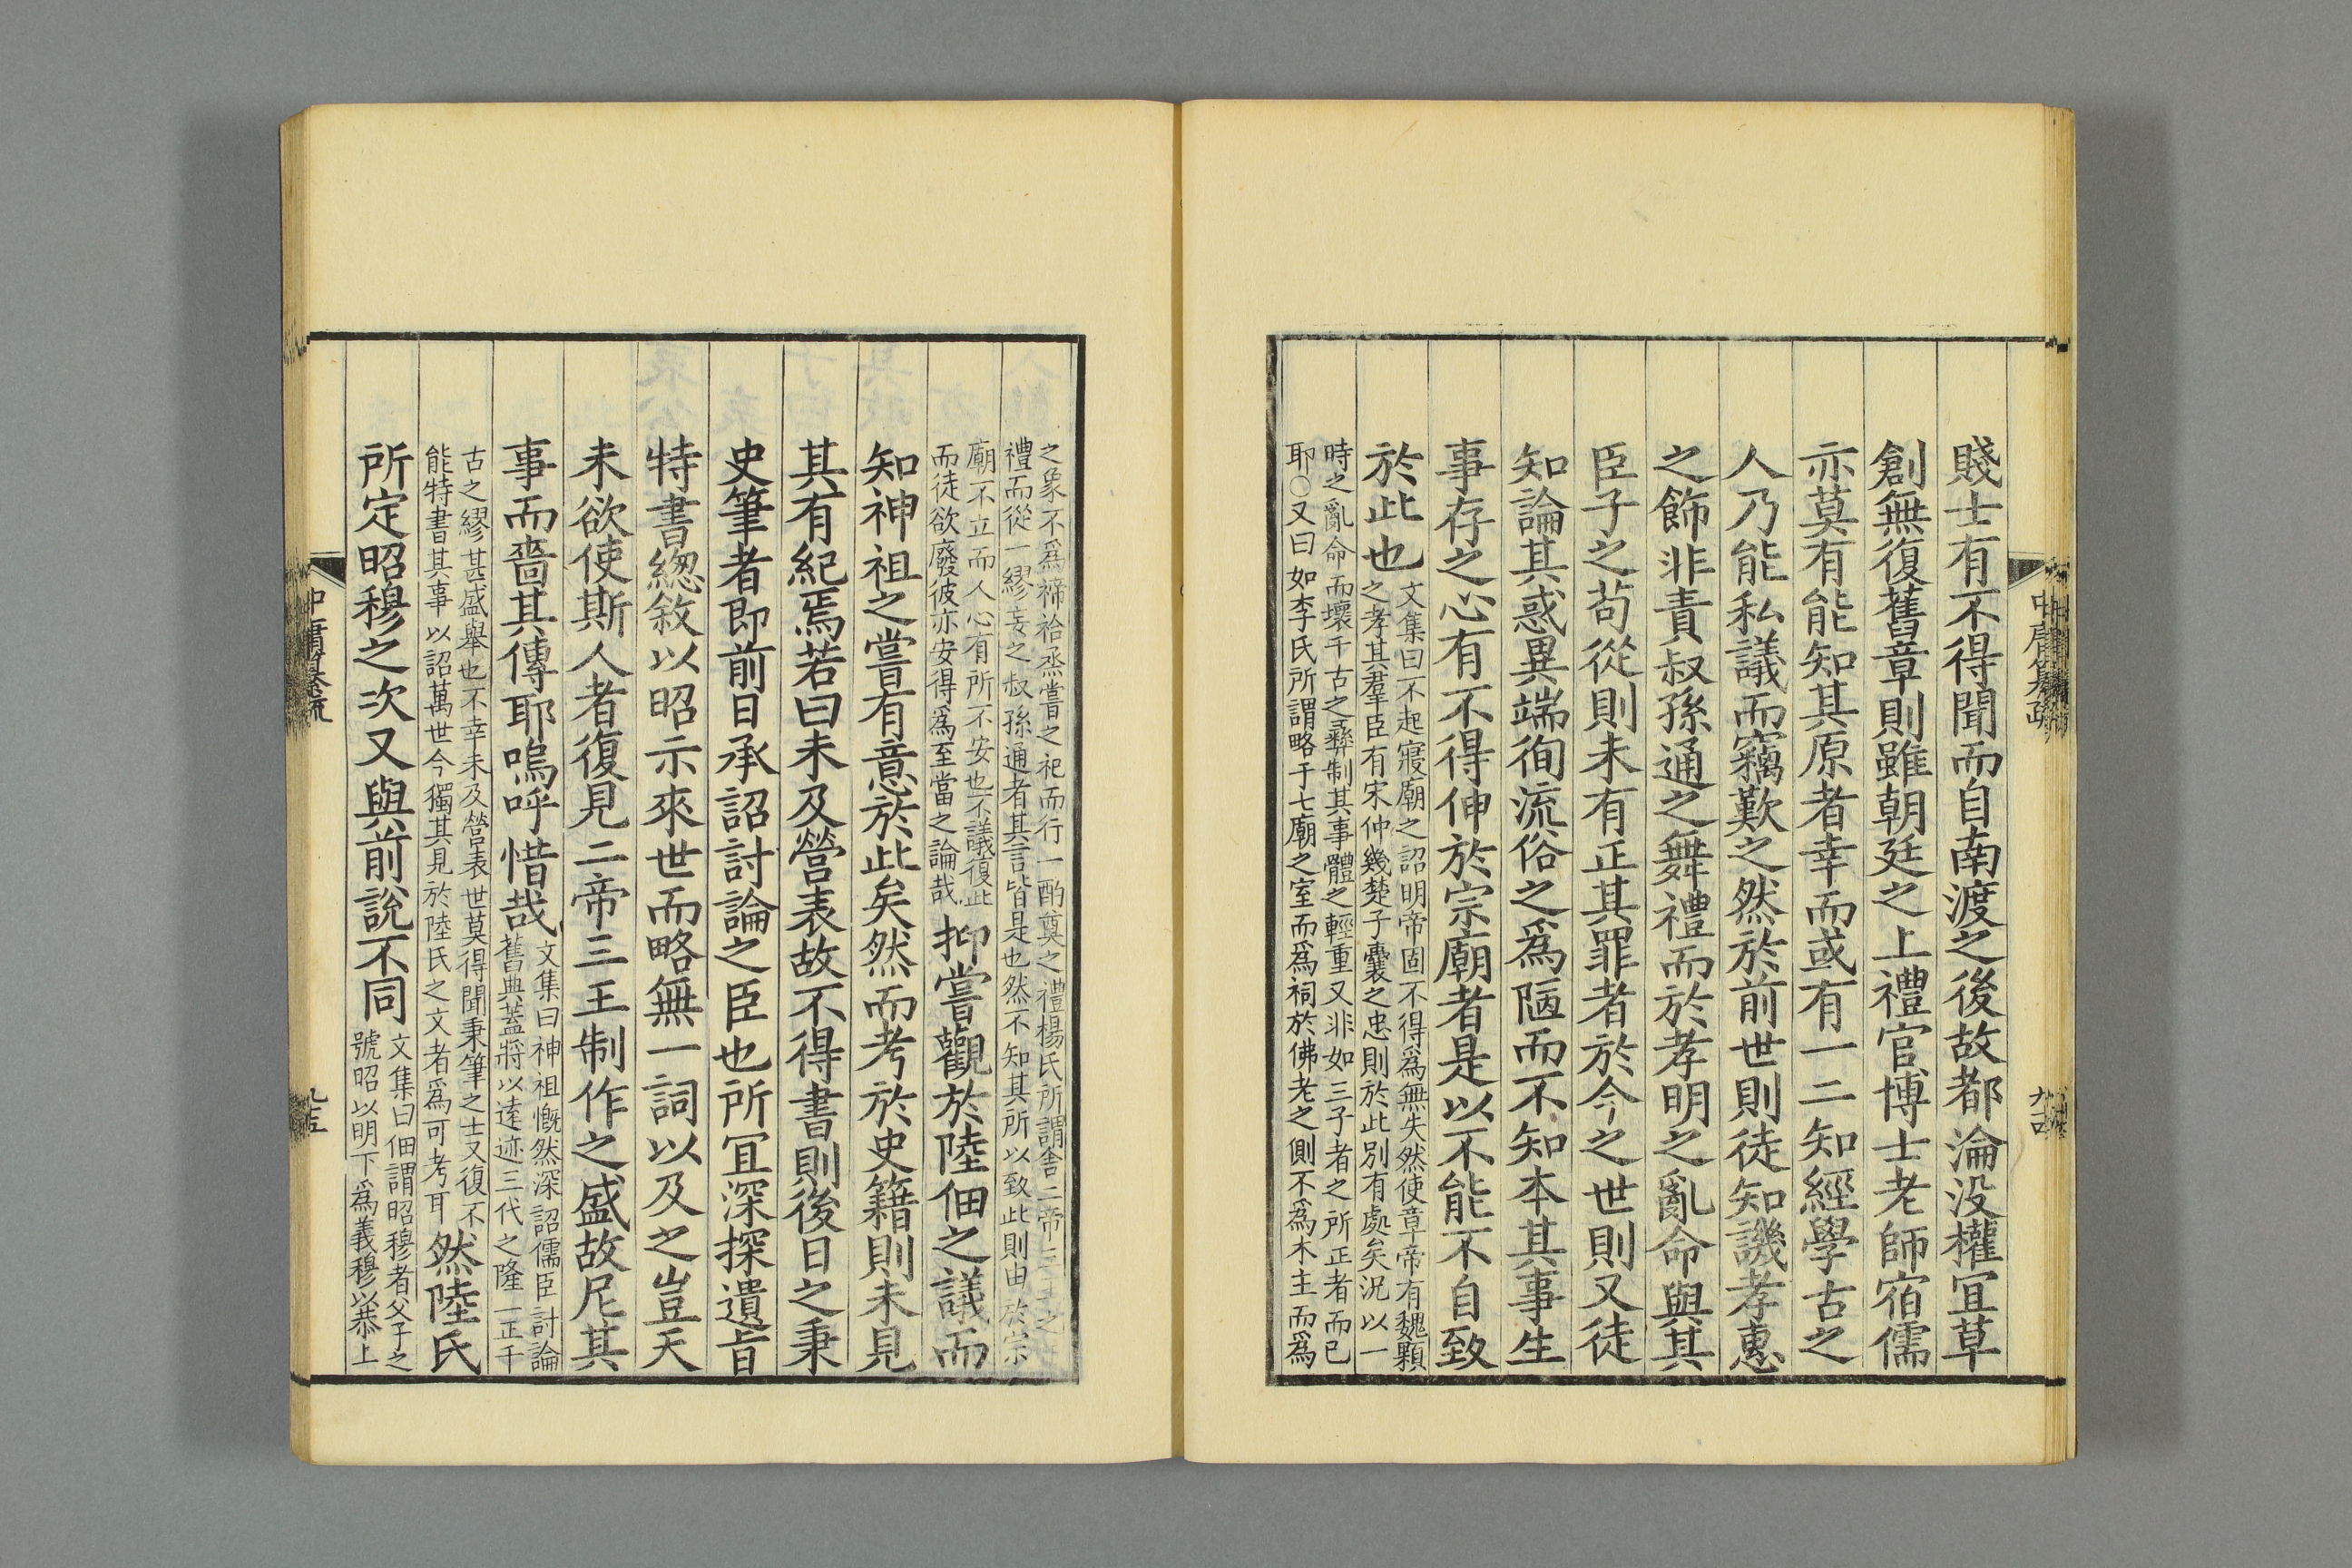 賤士有不得聞而自南渡之後故都淪没權冝草
創無復舊章則雖朝廷之上禮官博士老師宿儒
亦莫有能知其原者幸而或有一二知經學古之
人乃能私議而竊歎之然於前世則徒知譏孝惠
之飾非責叔孫通之舞禮而於孝明之亂命與其
臣子之苟從則未有正其罪者於今之世則又徒
知論其惑異端徇流俗之爲陋而不知本其事生
事存之心有不得伸於宗廟者是以不能不自致
於此也
文集曰不起寢廟之詔明帝固不得爲無失然使章帝有魏顆
之孝其羣臣有宋仲幾楚子囊之忠則於此別有處矣況以一
時之亂命而壞千古之彝制其事體之輕重又非如三子者之所正者而已
耶○又曰如李氏所謂略于七廟之室而爲祠於佛老之側不爲木主而爲
中庸纂疏
九十四
之象不爲禘祫烝嘗之祀而行一酌奠之禮楊氏所謂舍二帝三王之
禮而從一繆妄之叔孫通者其言皆是也然不知其所以致此則由於宗
廟不立而人心有所不安也不議復此
而徒欲廢彼亦安得爲至當之論哉
抑嘗觀於陸佃之議而
知神祖之嘗有意於此矣然而考於史籍則未見
其有紀焉若曰未及營表故不得書則後日之秉
史筆者即前日承詔討論之臣也所冝深探遺旨
特書緫敘以昭示來世而略無一詞以及之豈天
未欲使斯人者復見二帝三王制作之盛故尼其
事而嗇其傳耶嗚呼惜哉
文集曰神祖慨然深詔儒臣討論
舊典蓋將以遠迹三代之隆一正千
古之繆甚盛舉也不幸未及營表世莫得聞秉筆之士又復不
能特書其事以詔萬世今獨其見於陸氏之文者爲可考耳
然陸氏
所定昭穆之次又與前說不同
文集曰佃謂昭穆者父子之
號昭以明下爲義穆以恭上
中庸纂疏
九十五